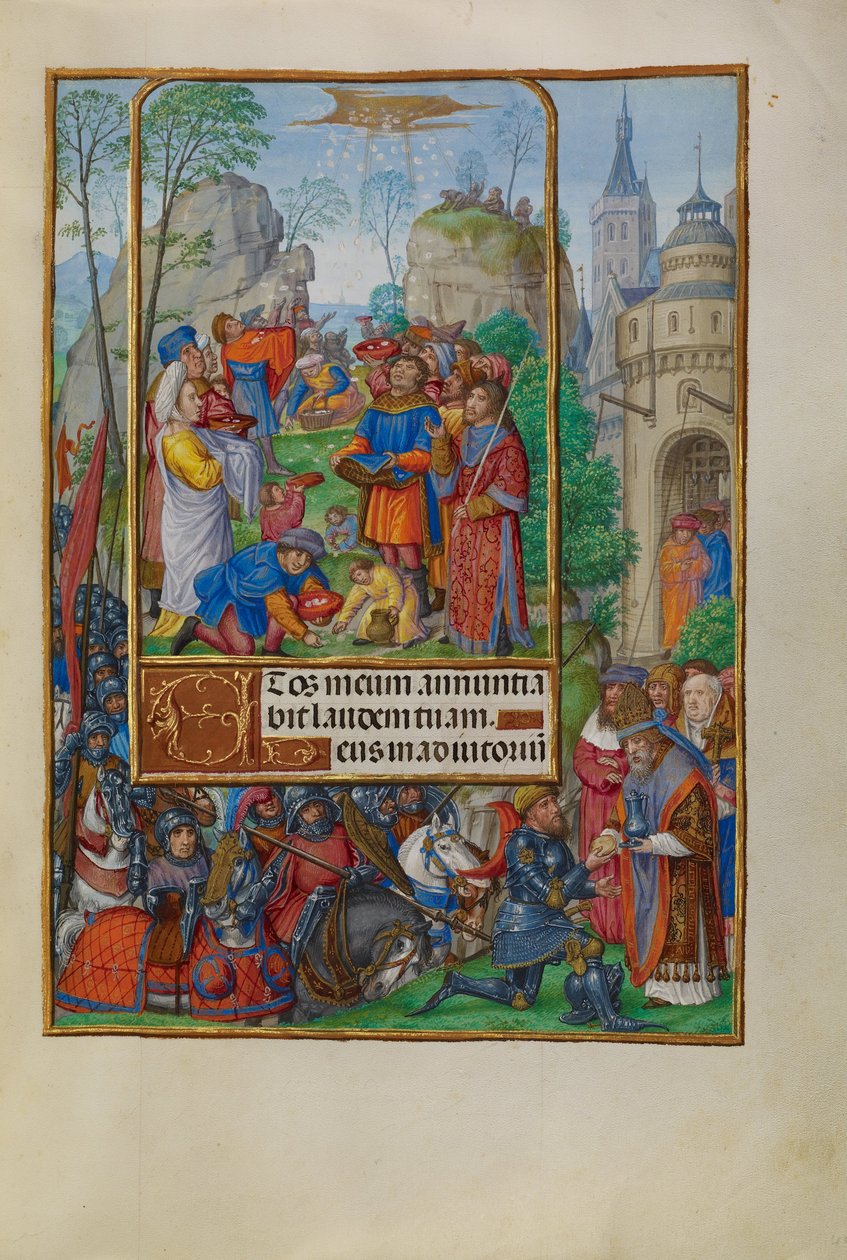 Et os meum annuntia
bit laudem tuam.
Deus in adiutoriu̅